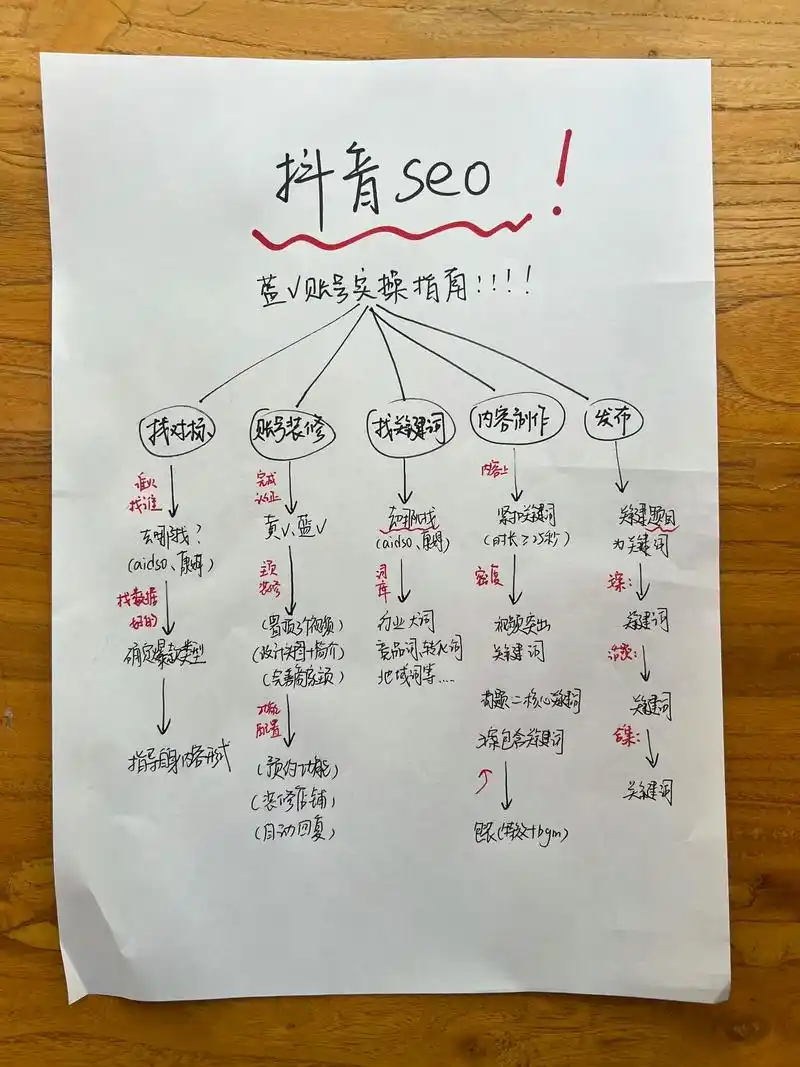 抖音seo!
蓝V账号实操指南!!!!
找对标
难以
找准
去哪找?
(aidso、
找数据
好的
确定爆款类型
指导自身内容形式
账号装修
完成
认证
黄V、蓝V
主页
装修
(置顶3个视频)
(设计头图+简介)
(完善商家主页)
功能
配置
(预约功能)
(装修店铺)
(自动回复)
找关键词
去哪找
(aidso、
词库
行业大词
竞品词、转化词
地域词等....
内容制作
内容上
紧扣关键词
(时长≥25秒)
密度
视频突出
关键词
标题=核心关键词
文案包含关键词
包装(特效+bgm)
发布
关键题目
为关键词
文案:
关键词
话题:
关键词
合集:
关键词